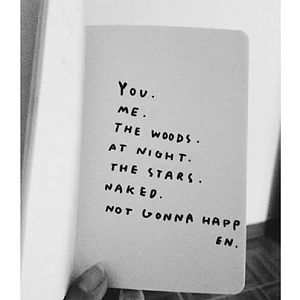 YOU.
ME.
THE WOODS.
AT NIGHT.
THE STARS.
NAKED.
NOT GONNA HAPP
EN.